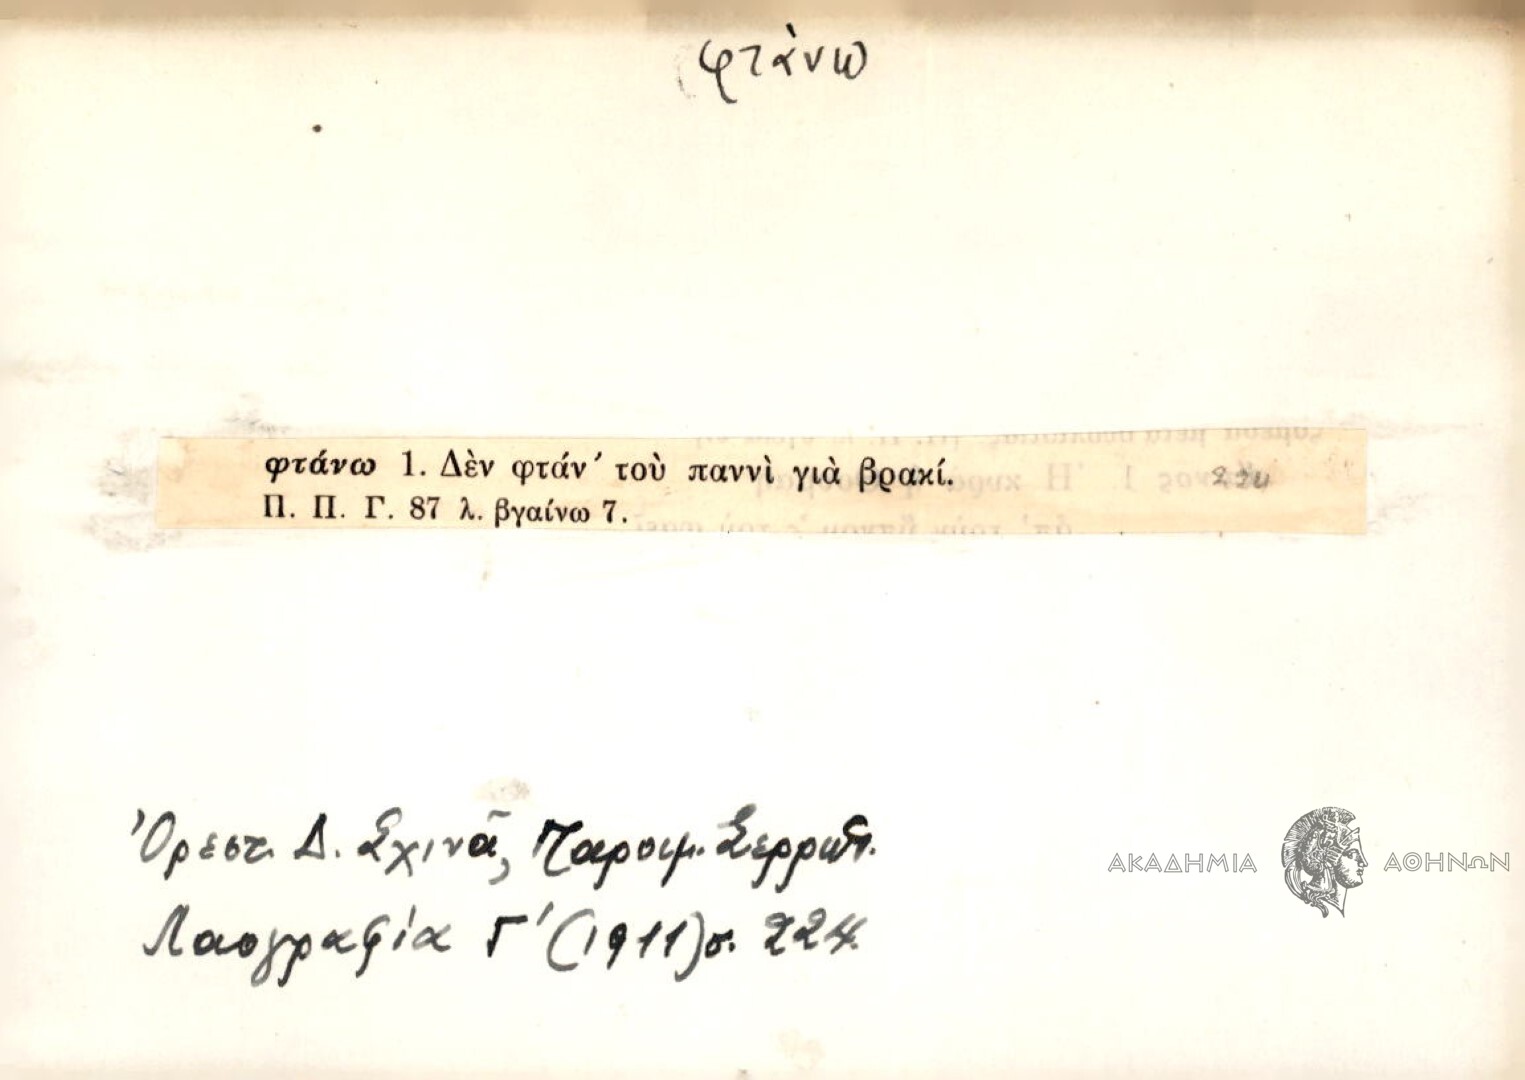 φτὰνω
φτάνω 1. Δὲν φτάν' τοὺ παννὶ γιὰ βρακί. 224
Π. Π. Γ. 87 λ. βγαίνω 7.
Ὀρεστ. Δ. Σχινᾶ, Παροιμ. Σερρῶν.
Λαογραφία Γ' (1911) σ. 224.
ΑΚΑΔΗΜΙΑ ΑΘΗΝΩΝ